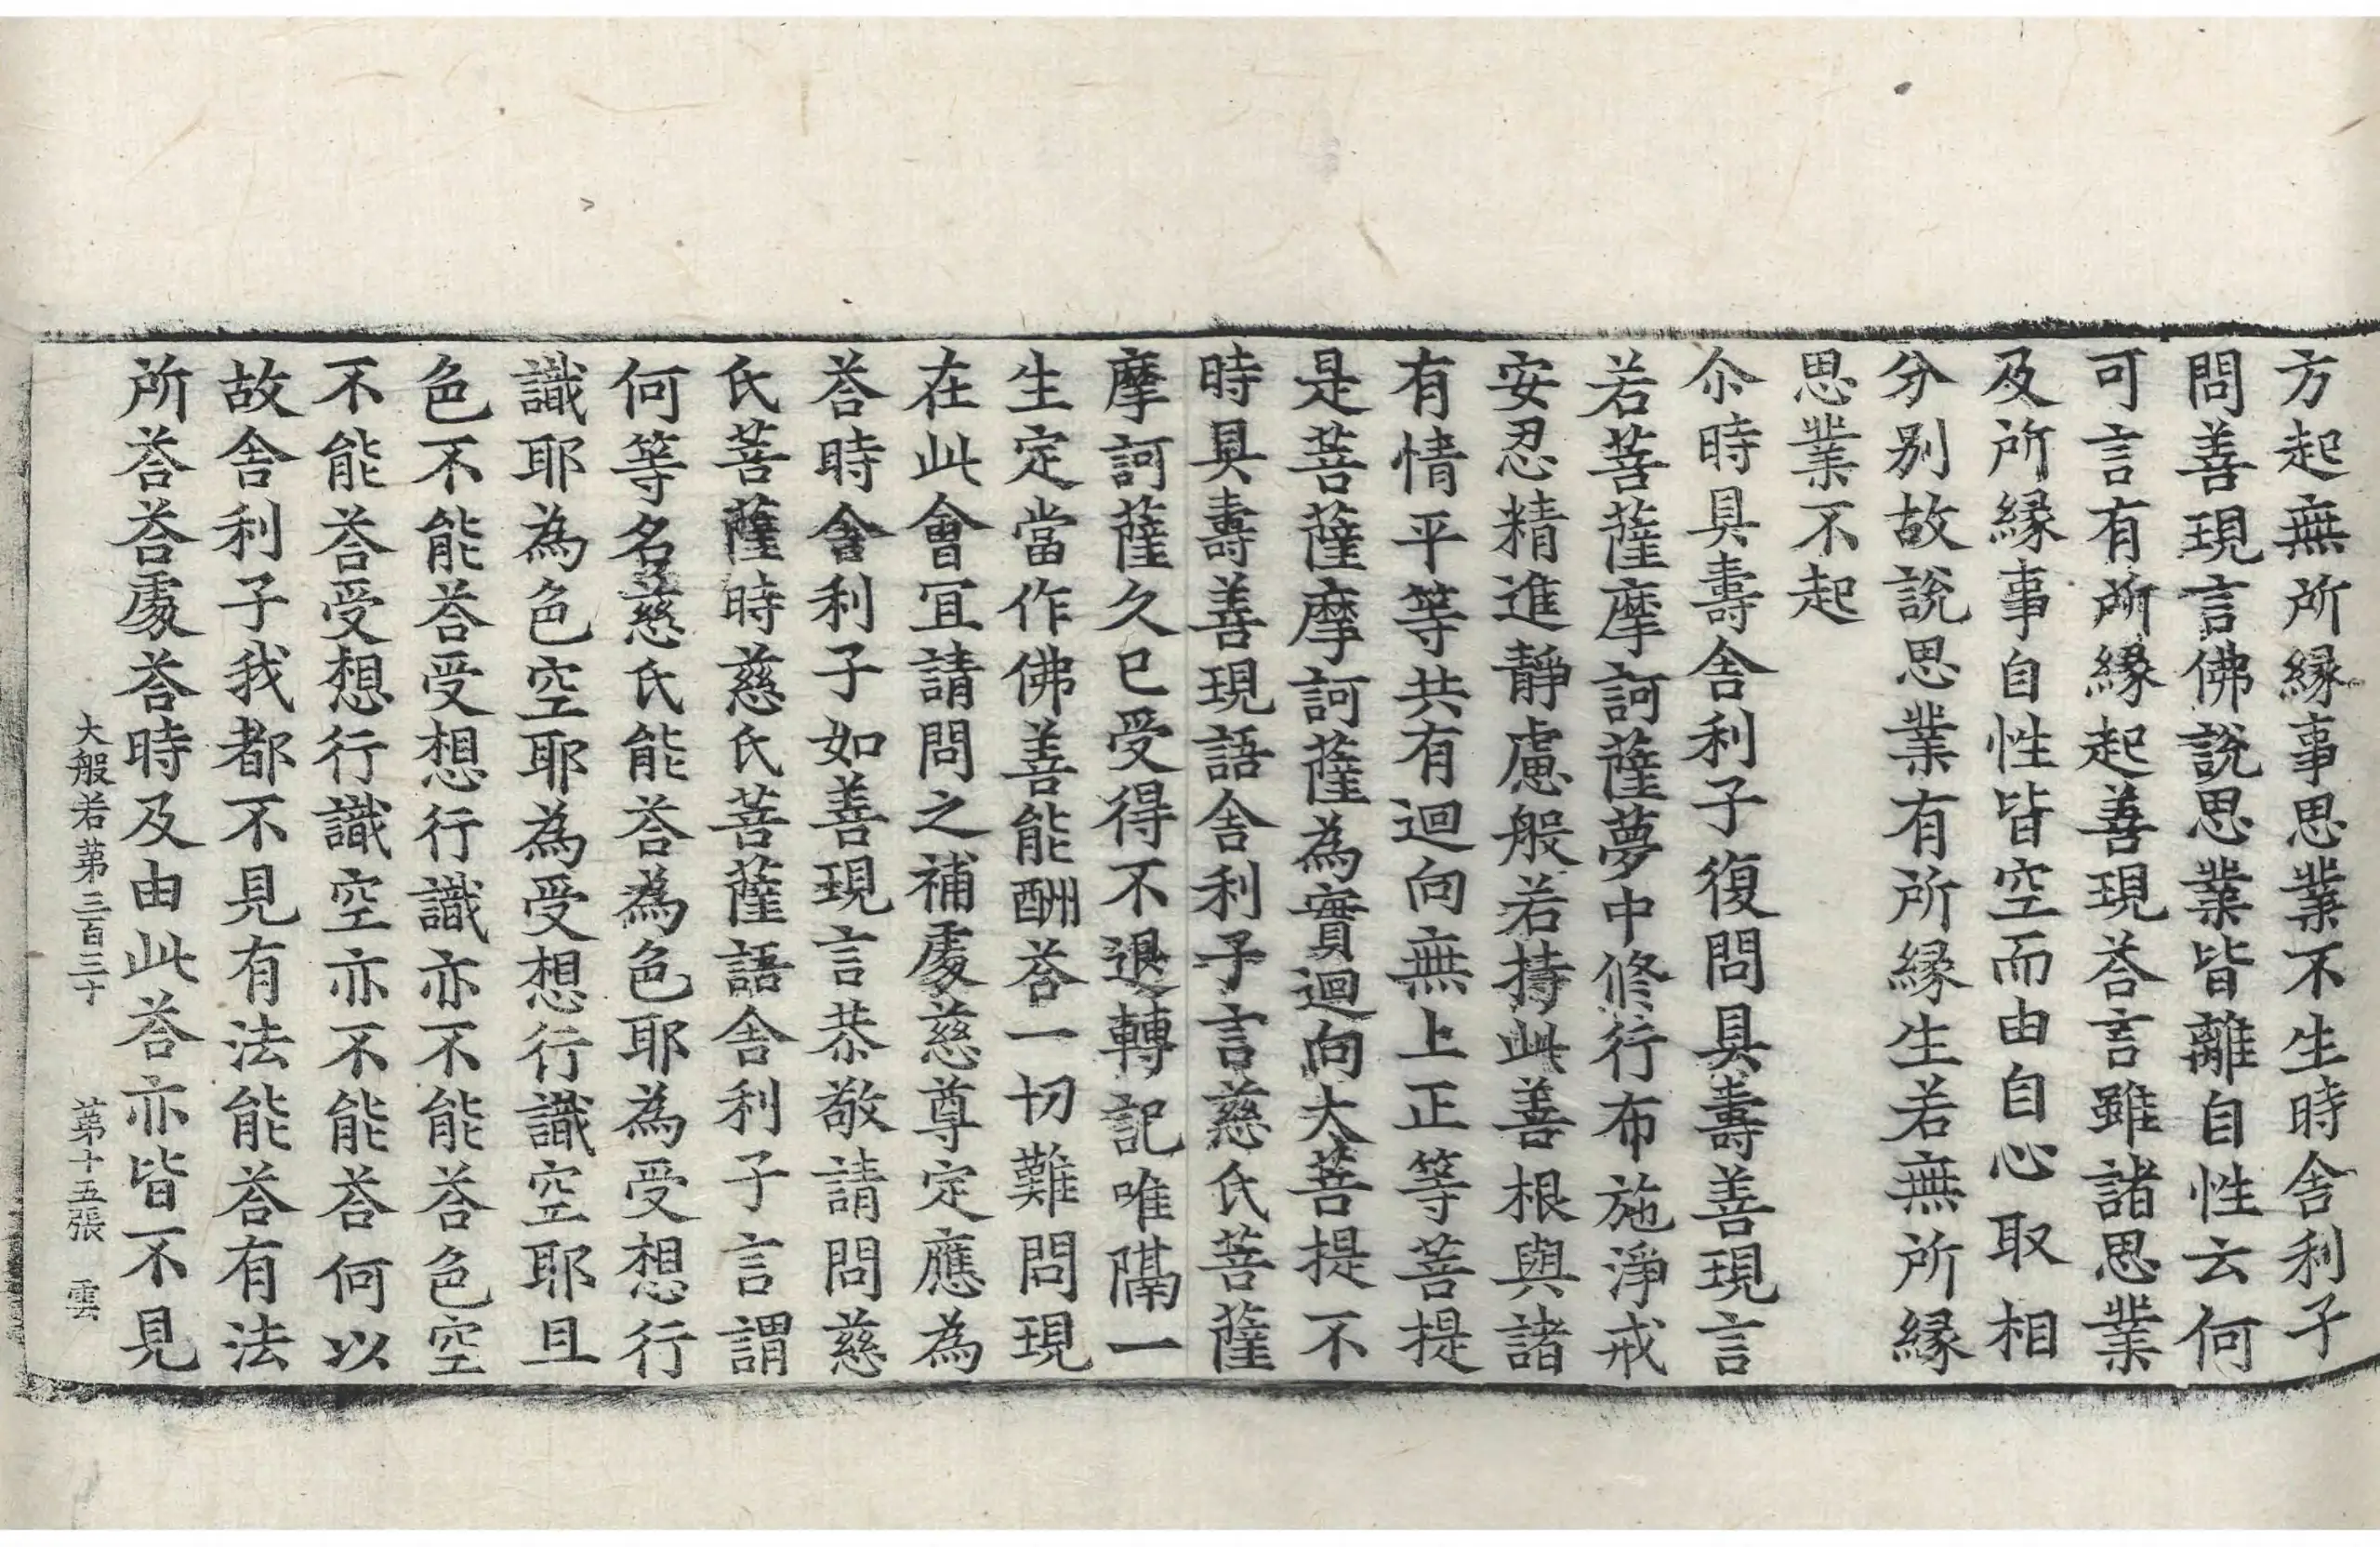 方起無所縁事思業不生時舎利子
問善現言佛說思業皆離自性云何
可言有所縁起善現荅言雖諸思業
及所縁事自性皆空而由自心取相
分别故說思業有所縁生若無所縁
思業不起
尒時具壽舎利子復問具壽善現言
若菩薩摩訶薩夢中修行布施淨戒
安忍精進靜慮般若持此善根與諸
有情平等共有迴向無上正等菩提
是菩薩摩訶薩為實迴向大菩提不
時具壽善現語舎利子言慈氏菩薩
摩訶薩久已受得不退轉記唯隔一
生定當作佛善能酬荅一切難問現
在此會宜請問之補處慈尊定應為
荅時舎利子如善現言恭敬請問慈
氏菩薩時慈氏菩薩語舎利子言謂
何等名慈氏能荅為色耶為受想行
識耶為色空耶為受想行識空耶且
色不能荅受想行識亦不能荅色空
不能荅受想行識空亦不能荅何以
故舎利子我都不見有法能荅有法
所荅荅處荅時及由此荅亦皆不見
大般若第三百三十 第十五張 雲